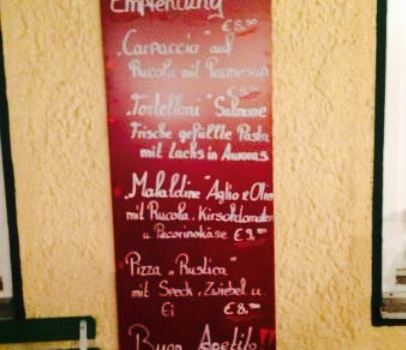 Empfehlung
„Carpaccio" auf
Rucola mit Parmesan
„Tortelloni" Salmone
Frische gefüllte Pasta
mit Lachs in Auroras
„Mafaldine" Aglio e Olio
mit Rucola, Kirschtomaten
u. Pecorinokäse € 9,00
Pizza „Rustica"
mit Speck, Zwiebel u.
Ei € 8,00
Buon Apetito